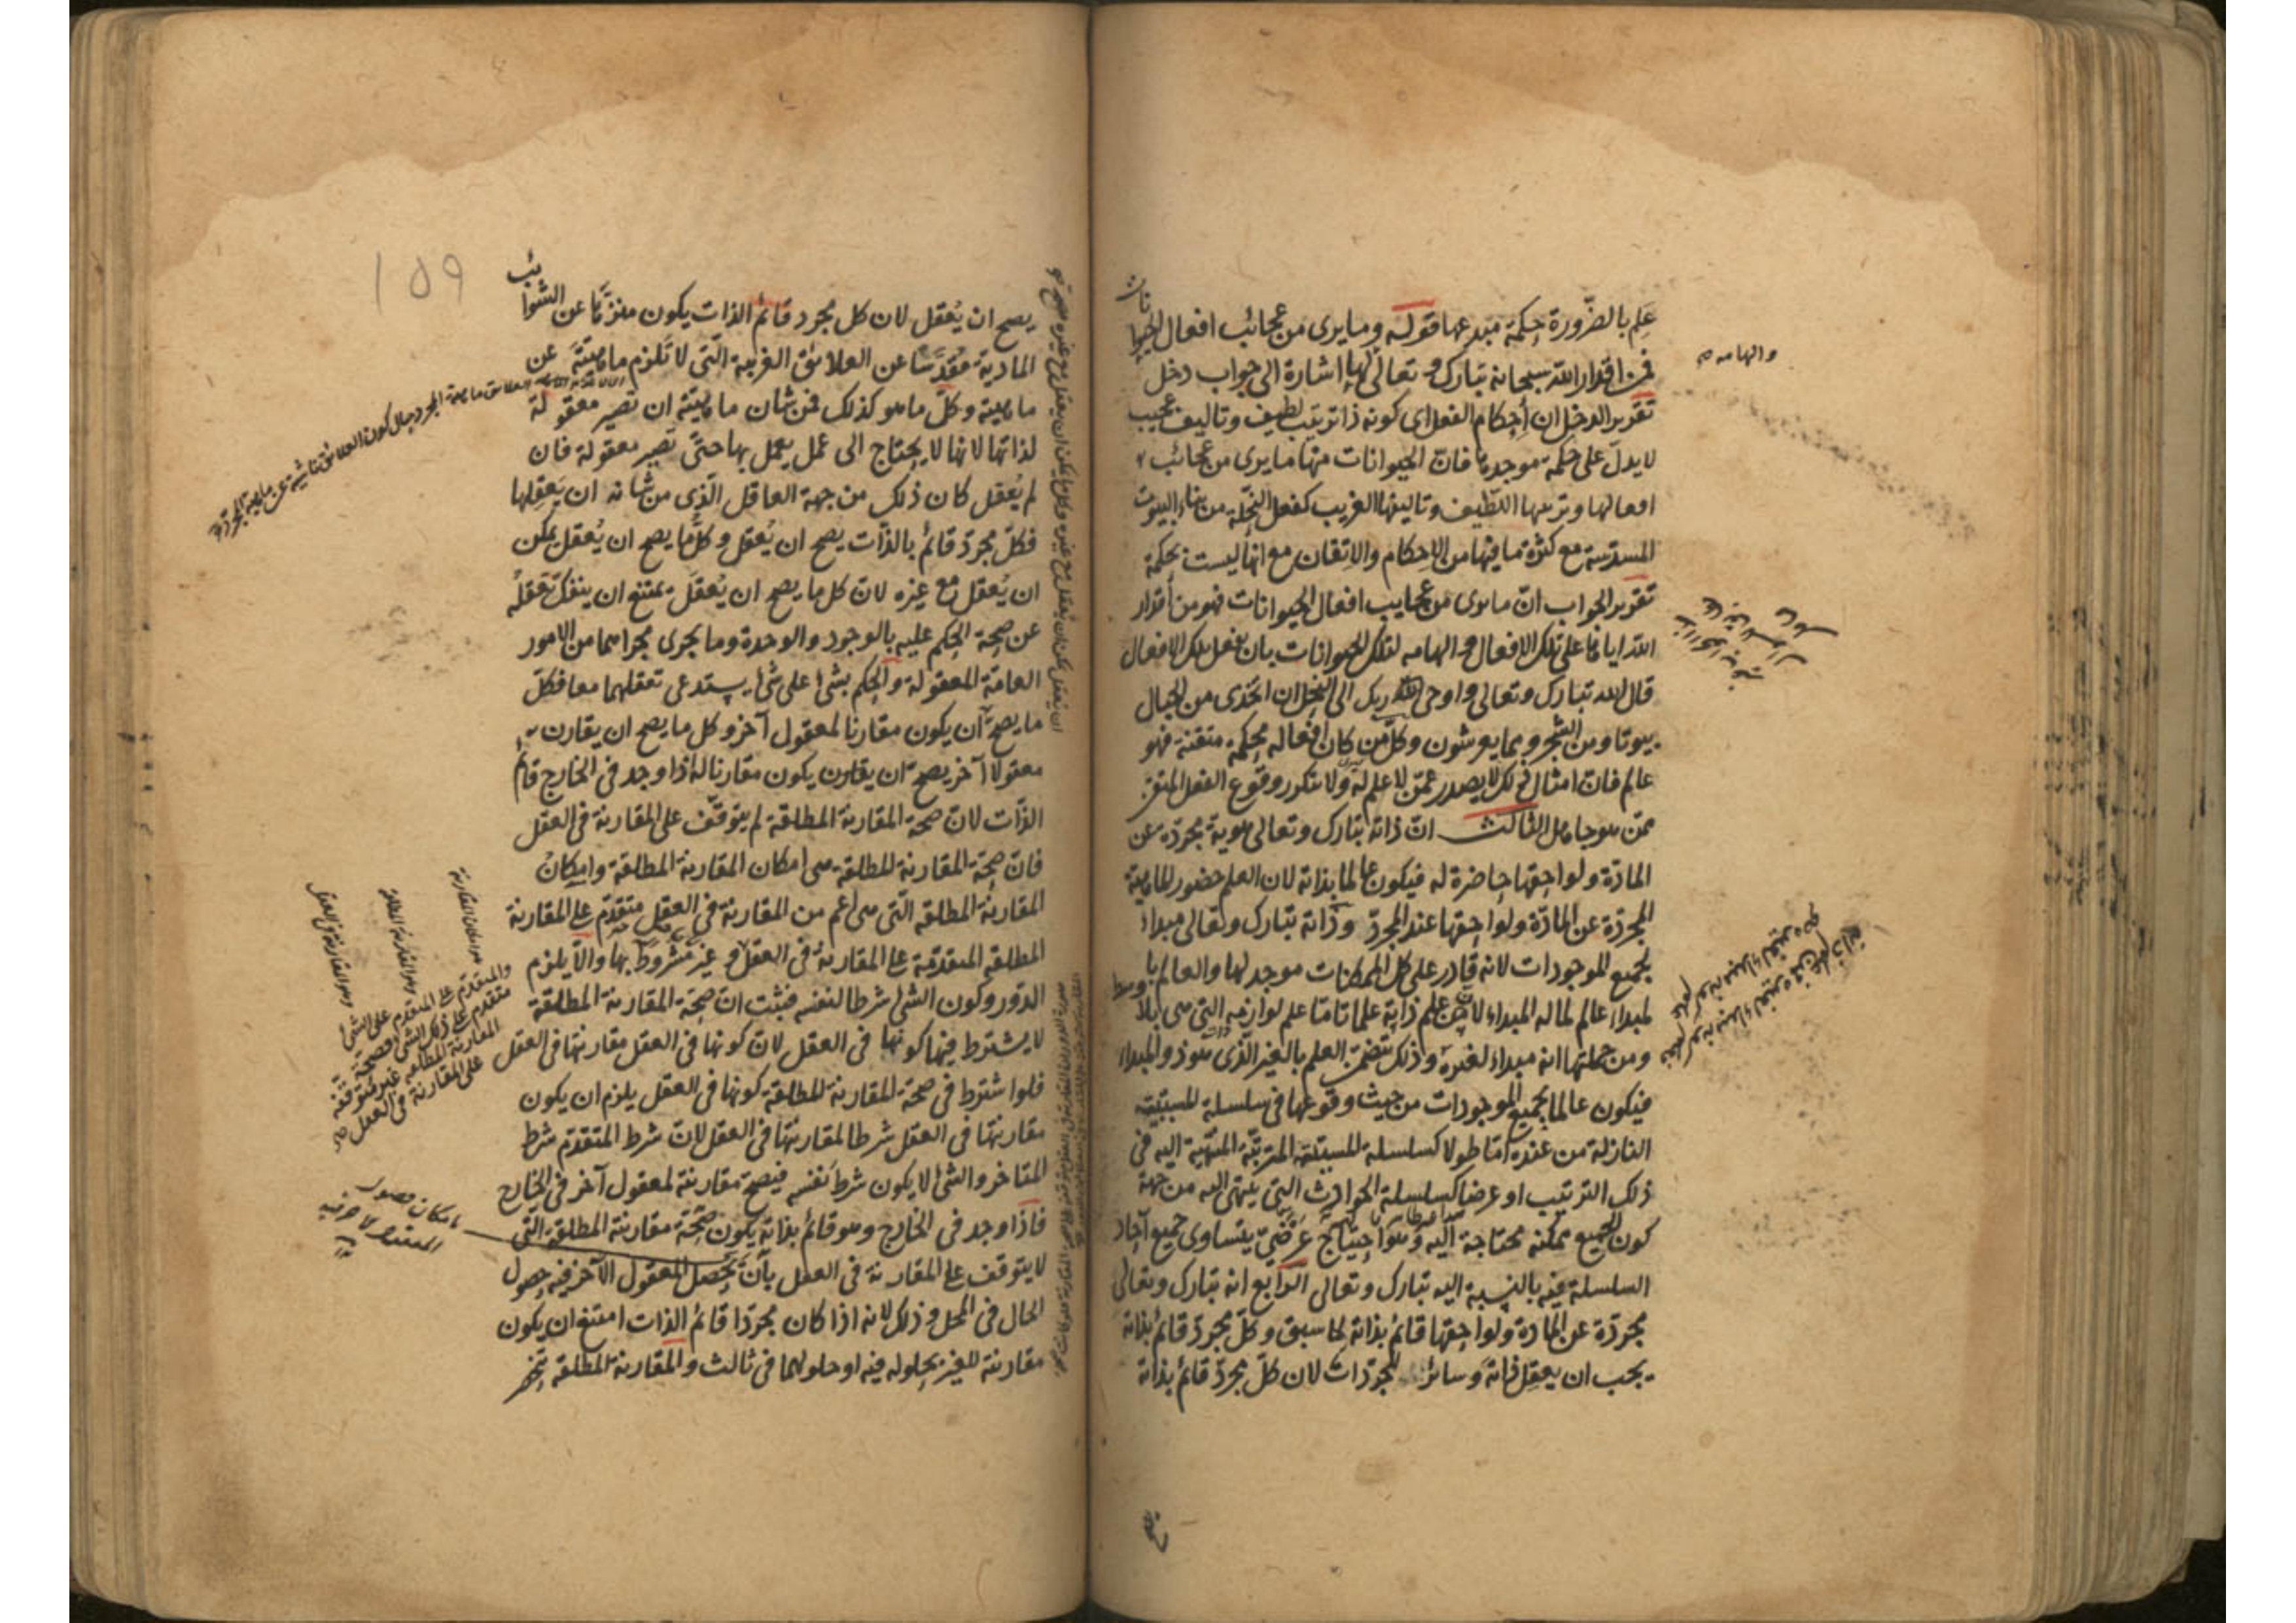 علم بالضرورة حكمة مبدعها قوله وما يرى من عجائب افعال الحيوانات
فمن اقدار الله سبحانه تبارك و تعالى لها اشارة الى جواب دخل
تقرير الدخل ان أحكام الفعل اى كونه ذا ترتيب لطيف وتاليف عجيب
لا يدل على حكمة موجده فان الحيوانات منها ما يرى من عجائب
افعالها وترتيبها اللطيف وتاليفها الغريب كفعل النحلة من بناء البيوت
المسدسة مع كثرة ما فيها من الاحكام والاتقان مع انها ليست بحكمة
تقرير الجواب ان ما يرى من عجايب افعال الحيوانات فهو من أقدار
الله اياها على تلك الافعال و الهامه لتلك الحيوانات بان يفعل تلك الافعال
قال الله تبارك وتعالى واوحى ربك الى النحل ان اتخذى من الجبال
بيوتا ومن الشجر ومما يعرشون وكل من كان افعاله محكمة متقنة فهو
عالم فان امثال ذلك لا يصدر عمن لا علم له ولا يتكرر وقوع الفعل المتقن
ممن هو جاهل الثالث ان ذاته تبارك وتعالى هوية مجردة عن
المادة ولواحقها حاضرة له فيكون عالما بذاته لان العلم حضور الماهية
المجردة عن المادة ولواحقها عند المجرد وذاته تبارك وتعالى مبداء
لجميع الموجودات لانه قادر على كل الممكنات موجد لها والعالم با
لمبداء عالم لما له المبداء لان من علم ذاته علما تاما علم لوازمه التى هى بلا وسط
ومن جملتها انه مبداء لغيره وذلك يتضمن العلم بالغير الذى هو ذو المبداء
فيكون عالما بجميع الموجودات من حيث وقوعها فى سلسلة المسببية
النازلة من عنده اما طولا كسلسلة المسببية المترتبة المنتهية اليه فى
ذلك الترتيب او عرضا كسلسلة الحوادث التى ينتهى اليه من جهة
كون الجميع ممكنة محتاجة اليه وهو احتياج عرضى يتساوى جميع آحاد
السلسلة فيه بالنسبة اليه تبارك وتعالى الرابع انه تبارك وتعالى
مجردة عن المادة ولواحقها قائم بذاته لما سبق وكل مجرد قائم بذاته
يجب ان يعقل ذاته وسائر المجردات لان كل مجرد قائم بذاته
والهامه
١٥٩
يصح ان يُعقل لان كل مجرد قائم الذات يكون منزها عن الشوائب
المادية مقدسا عن العلائق الغريبة التى لا تلزم ماهيته عن
ماهيته وكل ما هو كذلك فمن شان ماهيته ان تصير معقولة
لذاتها لانها لا يحتاج الى عمل يعمل بها حتى تصير معقولة فان
لم يُعقل كان ذلك من جهة العاقل الذى من شانه ان يعقلها
فكل مجرد قائم بالذات يصح ان يُعقل وكل ما يصح ان يُعقل يمكن
ان يُعقل مع غيره لان كل ما يصح ان يُعقل يمتنع ان ينفك تعقله
عن صحة الحكم عليه بالوجود والوحدة وما يجرى مجراهما من الامور
العامة المعقولة والحكم بشئ على شئ يستدعى تعقلهما معا فكل
ما يصح أن يكون مقارنا لمعقول آخر وكل ما يصح ان يقارن
معقولا آخر يصح ان يقارن يكون مقارنا له اذا وجد فى الخارج قائم
الذات لان صحة المقارنة المطلقة لم يتوقف على المقارنة فى العقل
فان صحة المقارنة المطلقة هى امكان المقارنة المطلقة وامكان
المقارنة المطلقة التى هى اعم من المقارنة فى العقل متقدم على المقارنة
المطلقة المتقدمة على المقارنة فى العقل و غير مشروط بها والا يلزم
الدور وكون الشئ شرطا لنفسه فثبت ان صحة المقارنة المطلقة
لا يشترط فيها كونها فى العقل لان كونها فى العقل مقارنتها فى العقل
فلو اشترط فى صحة المقارنة المطلقة كونها فى العقل يلزم ان يكون
مقارنتها فى العقل شرطا لمقارنتها فى العقل لان شرط المتقدم شرط
المتاخر والشئ لا يكون شرط نفسه فيصح مقارنة لمعقول آخر فى الخارج
فاذا وجد فى الخارج وهو قائم بذاته يكون صحة مقارنة المطلقة التى
لا يتوقف على المقارنة فى العقل بان يحصل المعقول الآخر فيه حصول
الحال فى المحل و ذلك لانه اذا كان مجردا قائم الذات امتنع ان يكون
مقارنة للغير بحلوله فيه او حلولهما فى ثالث والمقارنة المطلقة تنحصر
وهو المقارنة فى العقل
وهو المقارنة المطلقة
هو امكان المقارنة
والمتقدم على المتقدم على الشئ
متقدم على ذلك الشئ فصحة
المقارنة المطلقة غير متوقفة
على المقارنة فى العقل